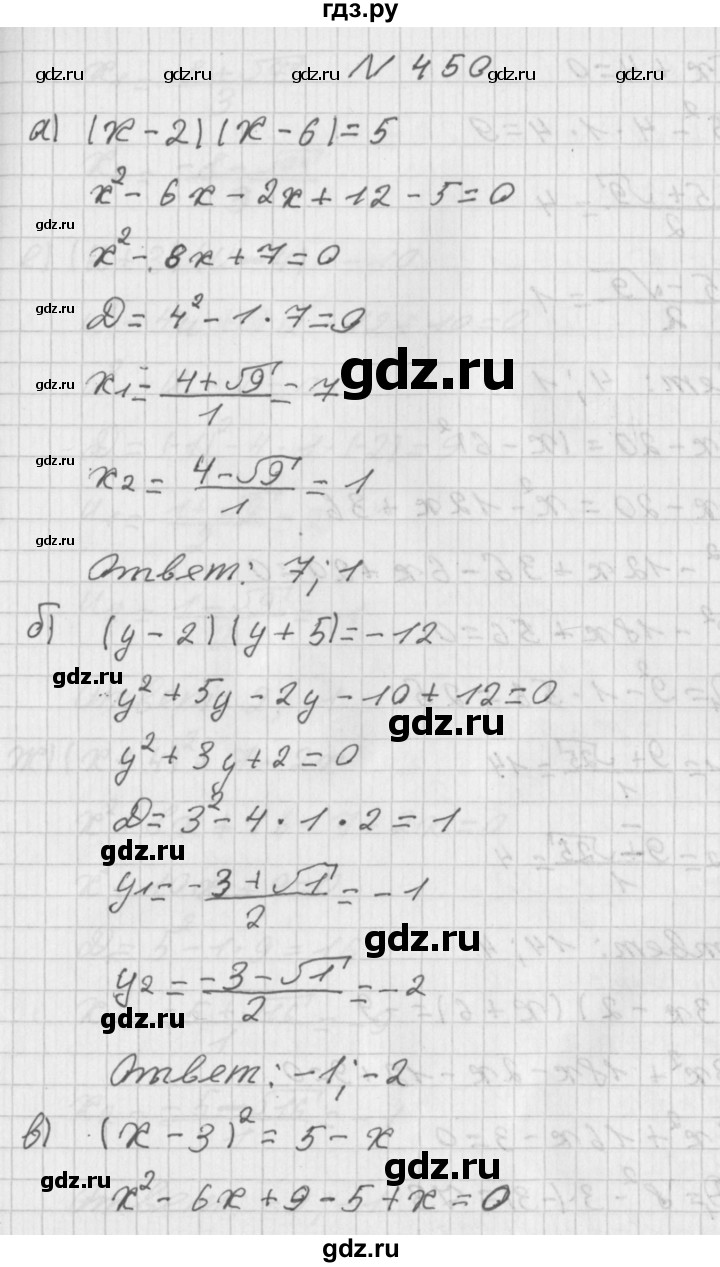 гдз.ру
N 450
gdz.ru gdz.ru gdz.ru gdz.ru
а) (x - 2)(x - 6) = 5
x² - 6x - 2x + 12 - 5 = 0
gdz.ru
x² - 8x + 7 = 0
gdz.ru
D = 4² - 1 · 7 = 9
gdz.ru
x1 = (4 + √9)/1 = 7
gdz.ru
gdz.ru
x2 = (4 - √9)/1 = 1
gdz.ru
Ответ: 7; 1
б) (y - 2)(y + 5) = -12
gdz.ru
y² + 5y - 2y - 10 + 12 = 0
gdz.ru
y² + 3y + 2 = 0
D = 3² - 4 · 1 · 2 = 1
gdz.ru
y1 = (-3 + √1)/2 = -1
gdz.ru
y2 = (-3 - √1)/2 = -2
gdz.ru
Ответ: -1; -2
в) (x - 3)² = 5 - x
gdz.ru
gdz.ru
x² - 6x + 9 - 5 + x = 0
gdz.ru